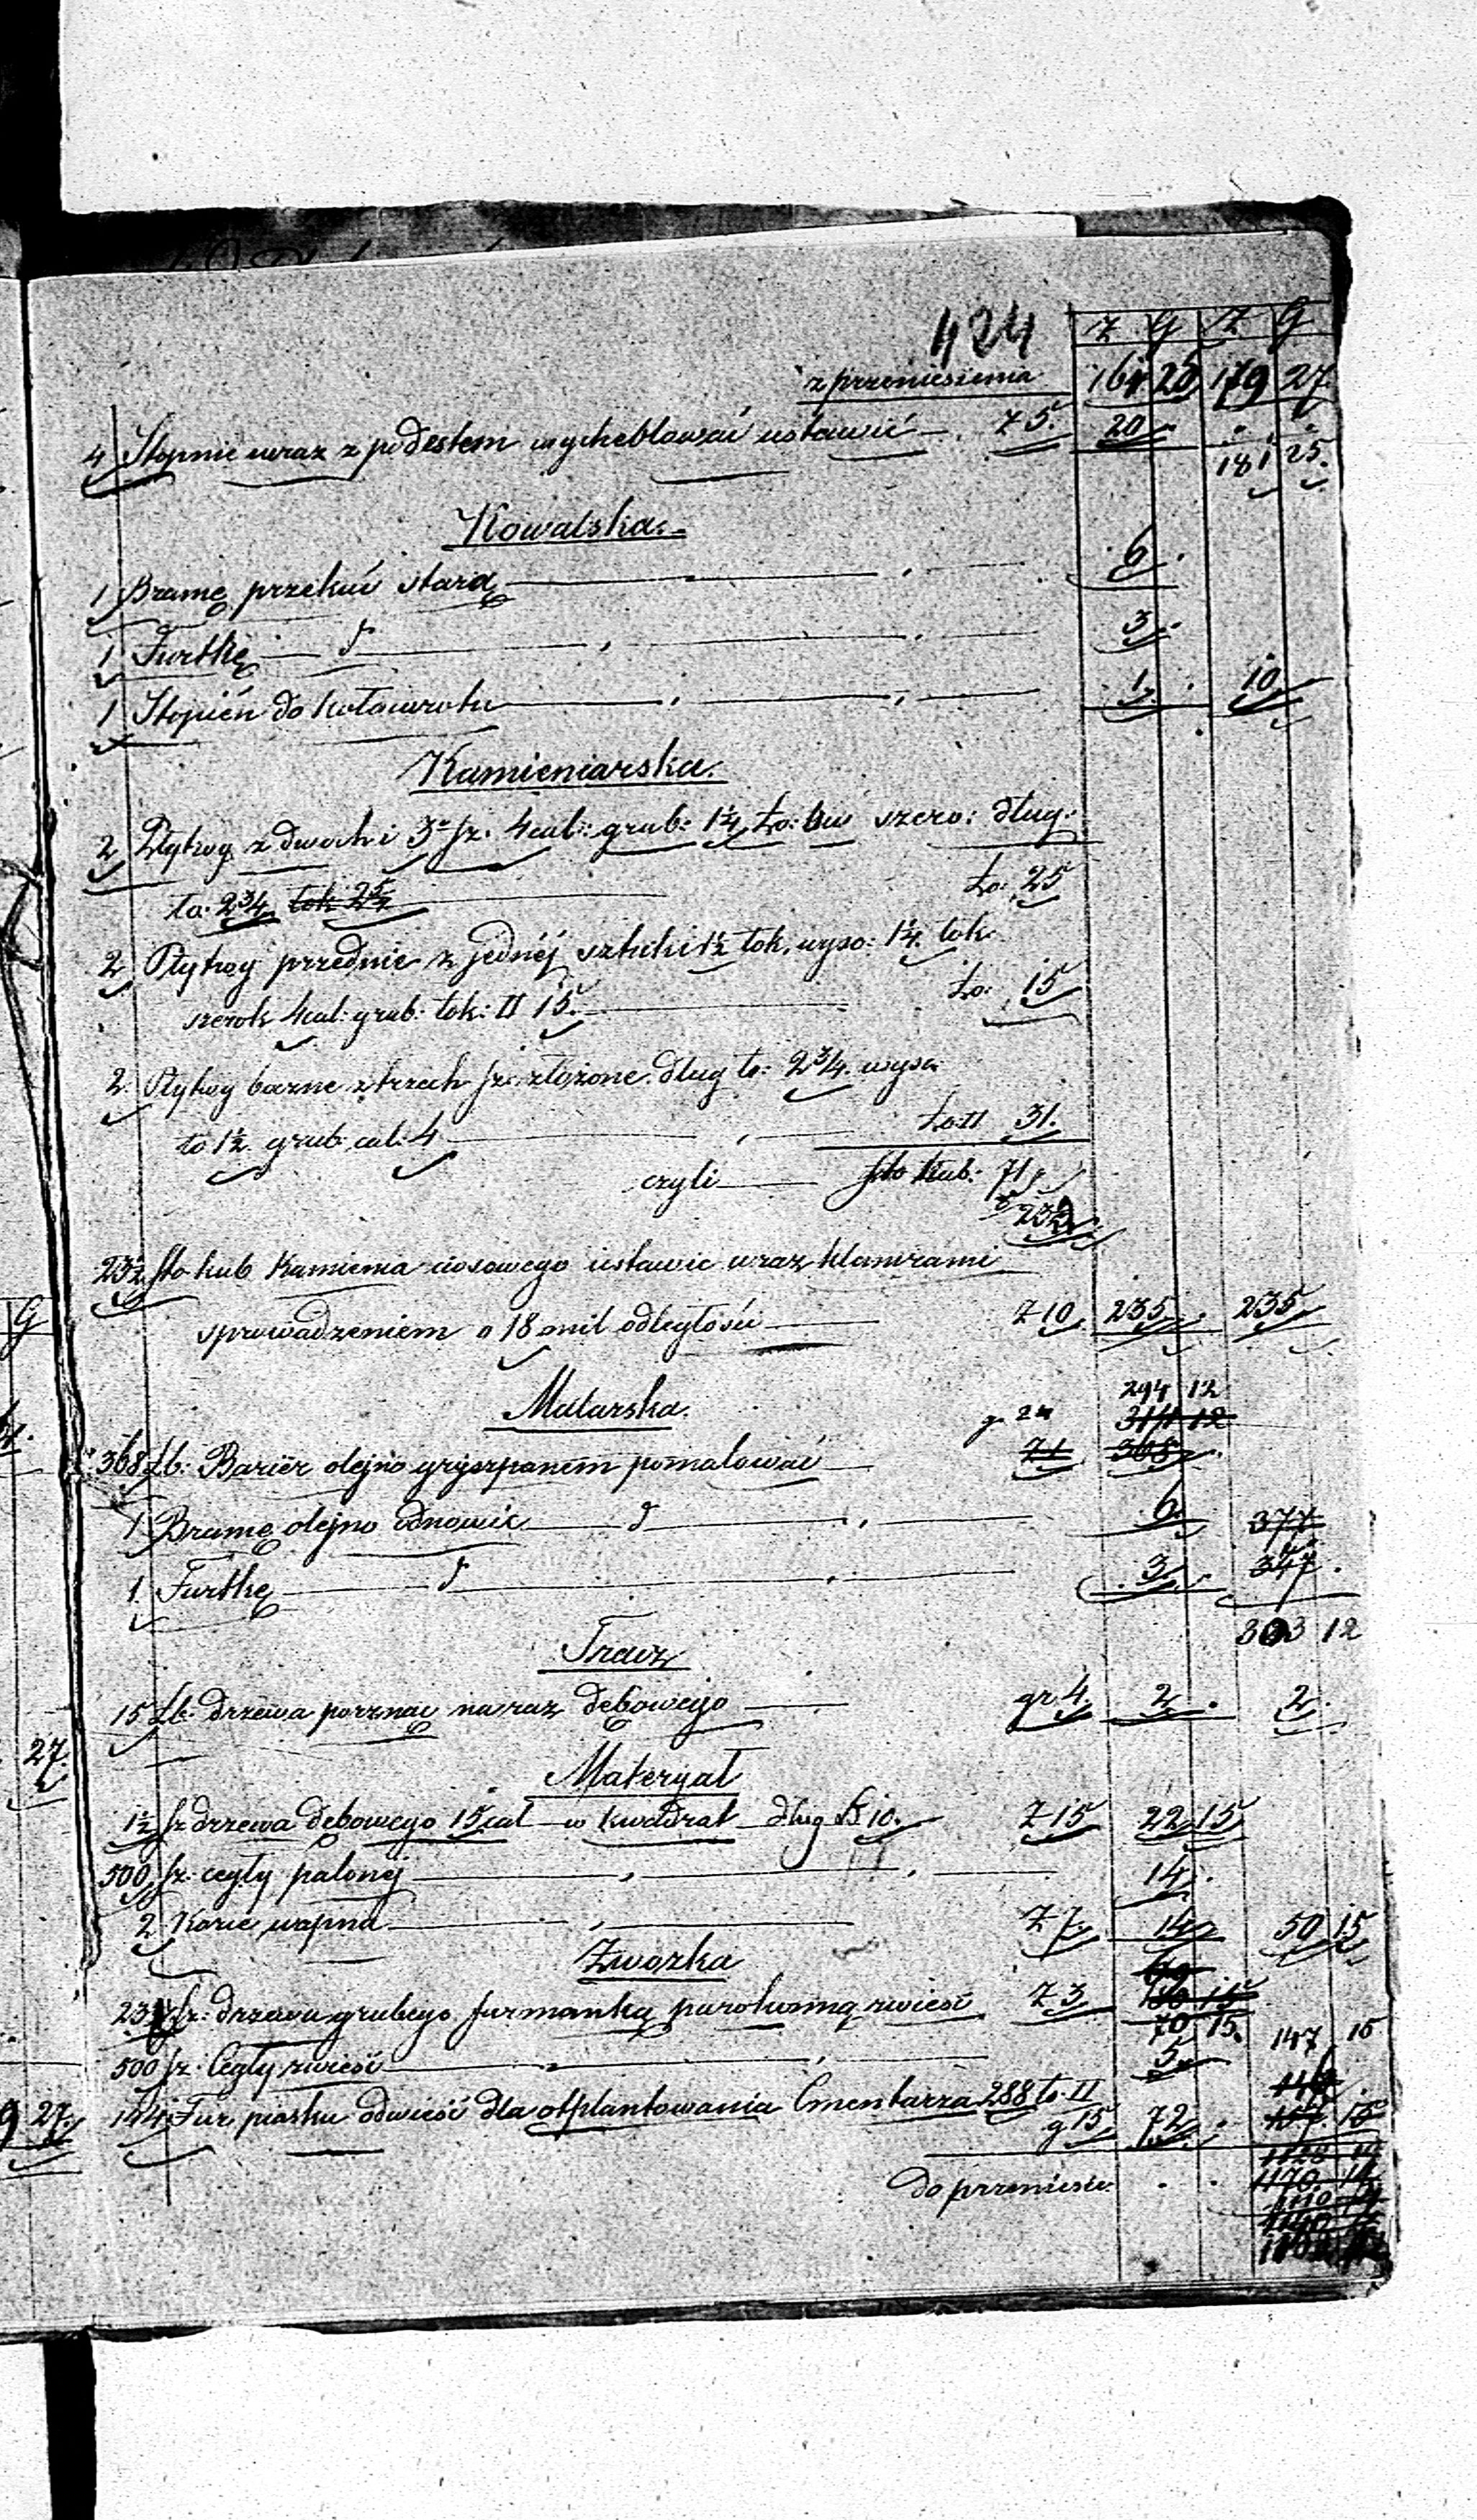 424
Z G Z G
z przeniesienia 161 25 179 27
4 Stopnie wraz z podestem wycheblować ustawić — Z 5. 20 . . .
181 25.
Kowalska.
1 Bramę przekuć starą 6 .
1 Furtkę d 3 .
1 Stopień do kołowrotu 1 . 10
Kamieniarska.
2 Płyty z dwóch i 3 sz. 4 cal: grub: 1¼ Ło: szero: dług:
ło: 2¾ łok 2½ Ło: 25
2 Płyty przednie z jednéj sztuki 1½ łok. wyso: 1¼ łok
szerok 4 cal: grub: łok: II 15. Ło: 15
2 Płyty boczne z trzech sz: złożone dług ło: 2¾ wyso:
ło 1½ grub: cal: 4 Ło: II 31.
czyli sto kub: 71
23½
23½ sto kub Kamienia ciosowego ustawić wraz klamrami
sprowadzeniem o 18 mil odległości Z 10 235 . 235
294 12
Malarska. g 24 314 12
368 Łb: Barier olejno gryszpanem pomalować Z 1 368 .
1 Bramę olejno odnowić d 6. 377
1. Furtkę d 3 . 347 .
303 12
Tracz
15 Łb: drzewa porznąć na raz dębowego gr 4. 2 . 2.
Materyał
1½ sz drzewa dębowego 15 cal w kwadrat dług Łb 10. Z 15 22 15
500 sz: cegły palonej 14 .
2 Korce wapna Z 7. 14 50 15
Zwozka
23½ sz: drzewa grubego furmanką parokonną zwieść Z 3 70 15. 147 15
500 sz: Cegły zwieść 5
144 Fur piasku dowieść dla otplantowania Cmentarza 288 ło: II
g 15 72 . 167 15
do przeniesie: . . 1128 14
1170 14
1110 14
1140
G
27.
9 27.